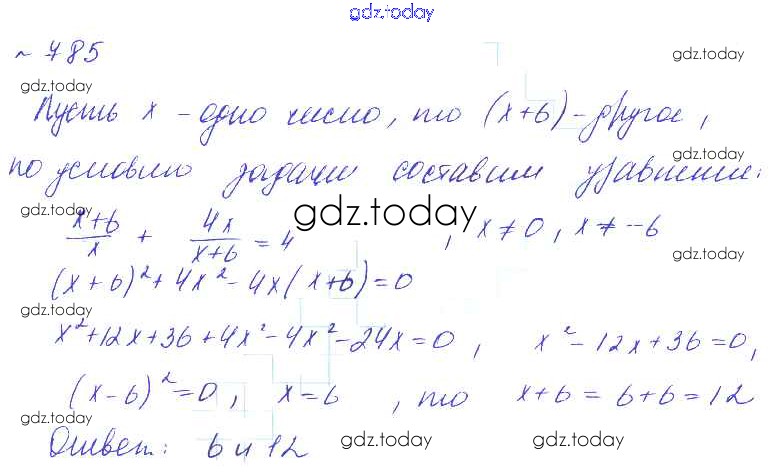 gdz.today
~ 785
gdz.today
gdz.today
Пусть x - одно число, то (x+6) - другое,
по условию задачи составим уравнение:
gdz.today
gdz.today
(x+6)/x + 4x/(x+6) = 4 , x ≠ 0, x ≠ -6
gdz.today
gdz.today
(x+6)² + 4x² - 4x(x+6) = 0
gdz.today
x² + 12x + 36 + 4x² - 4x² - 24x = 0, x² - 12x + 36 = 0,
(x-6)² = 0, x = 6 , то x+6 = 6+6 = 12
gdz.today
Ответ: 6 и 12
gdz.today
gdz.today